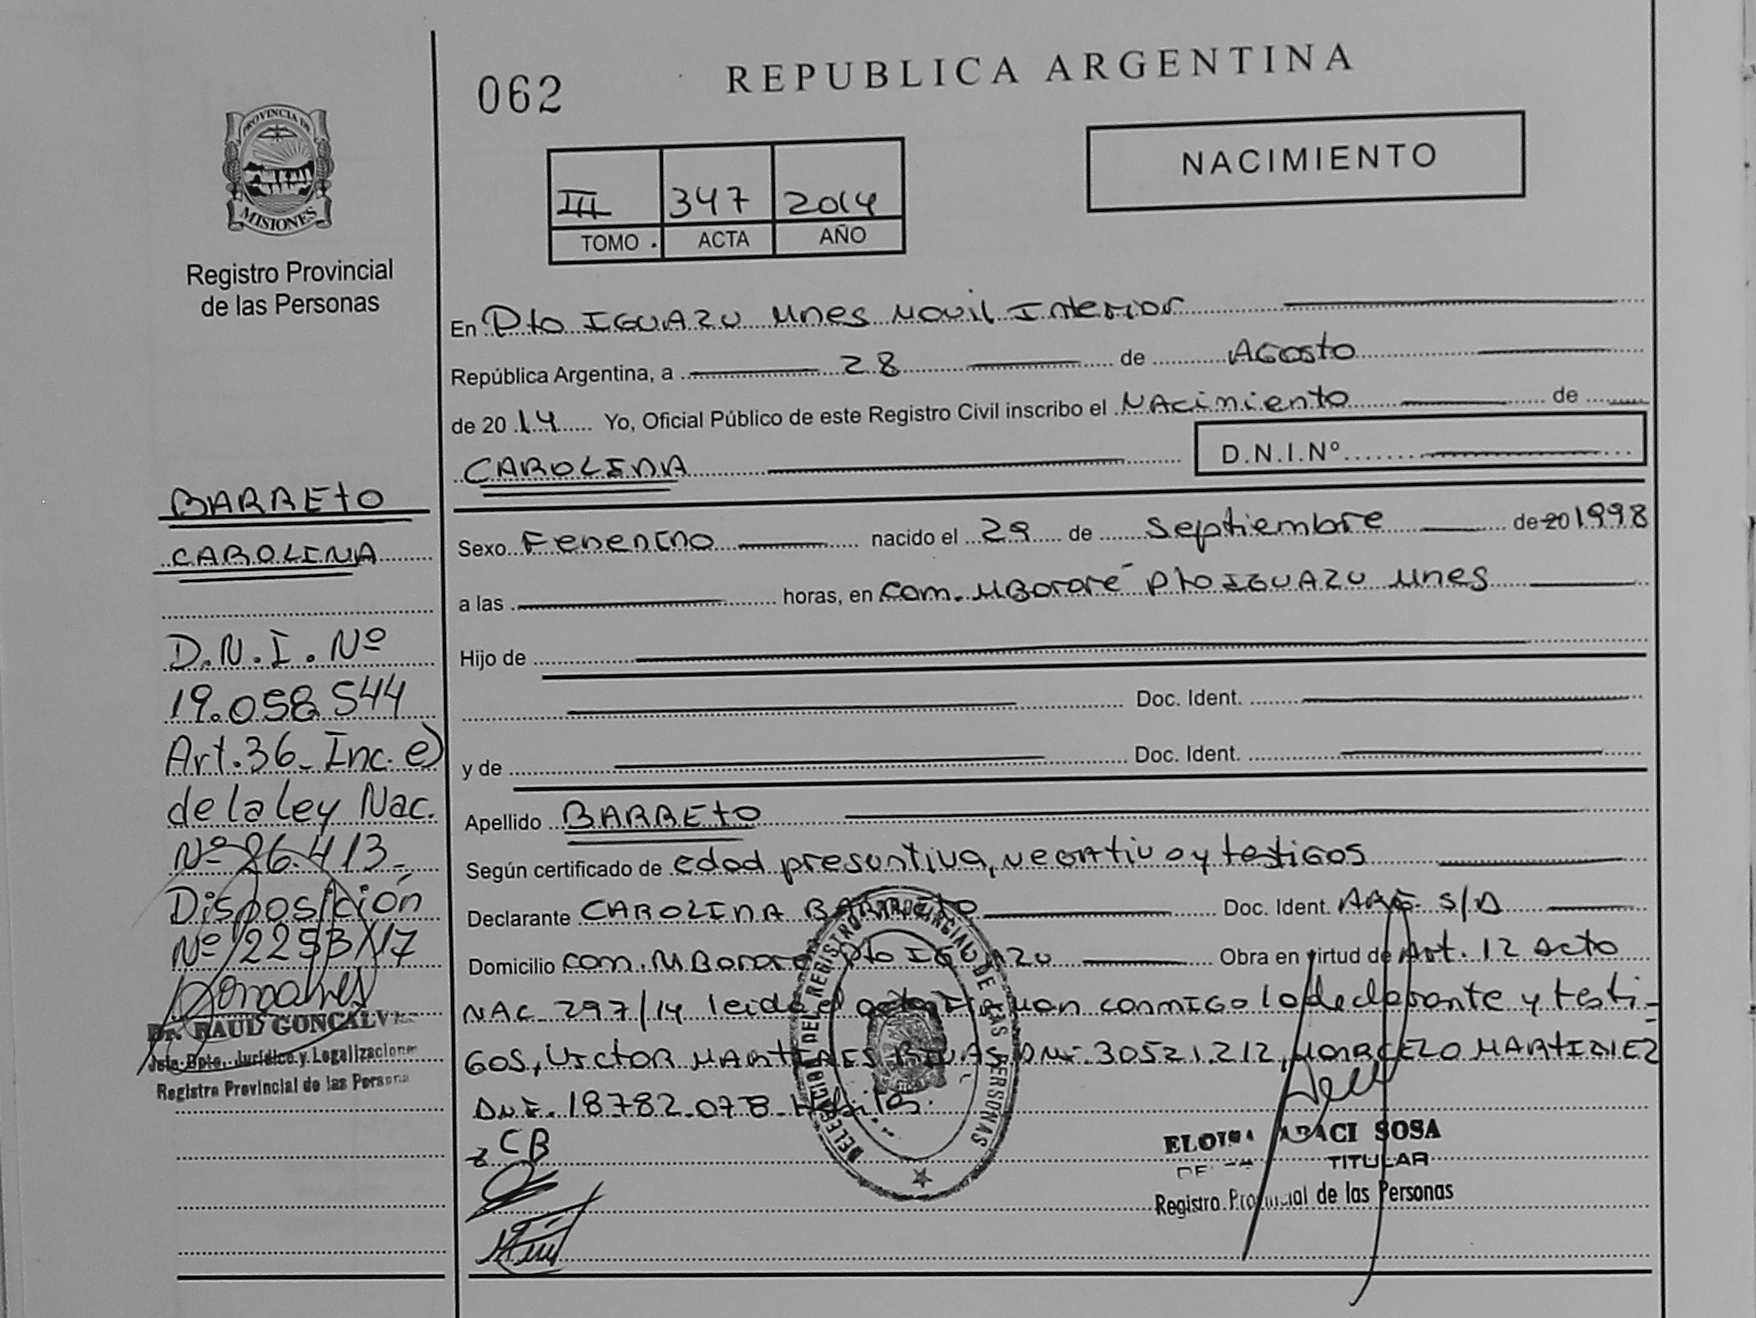 062
REPUBLICA ARGENTINA
NACIMIENTO
III 347 2014
TOMO ACTA AÑO
PROVINCIA DE
MISIONES
Registro Provincial
de las Personas
BARRETO
CAROLINA
D.N.I. Nº
19.058.544
Art.36_Inc.e)
de la ley Nac.
Nº26.413_
Disposición
Nº 2253/17
Dr. RAUL GONCALV
Jefe Dpto. Jurídico y Legalizacione
Registro Provincial de las Persona
En Pto IGUAZU Mnes Movil Interior
República Argentina, a 28 de Agosto
de 2014 Yo, Oficial Público de este Registro Civil inscribo el NAcimiento de
CAROLINA D.N.I.Nº
Sexo Femenino nacido el 29 de Septiembre de 20 1998
a las horas, en Com. MBororé Pto IGUAZU Mnes
Hijo de
Doc. Ident.
y de Doc. Ident.
Apellido BARRETO
Según certificado de edad presuntiva, negativo y testigos
Declarante CAROLINA BARRETO Doc. Ident. ARG. S/D
Domicilio Com. MBororé Pto IGUAZU Obra en virtud de Art. 12 Dcto
NAC 297/14 leida el acta firman conmigo la declarante y testi-
gos, Victor MARTINES RIVAS DNI 30521.212, MARCELO MARTINEZ
D.N.I. 18782.078
CB
DELEGACION DEL REGISTRO PROVINCIAL DE LAS PERSONAS
SOSA
TITULAR
Registro Provincial de las Personas